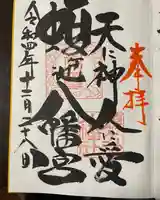 奉拝
天に神人に愛
八幡宮
令和四年十二月二十八日